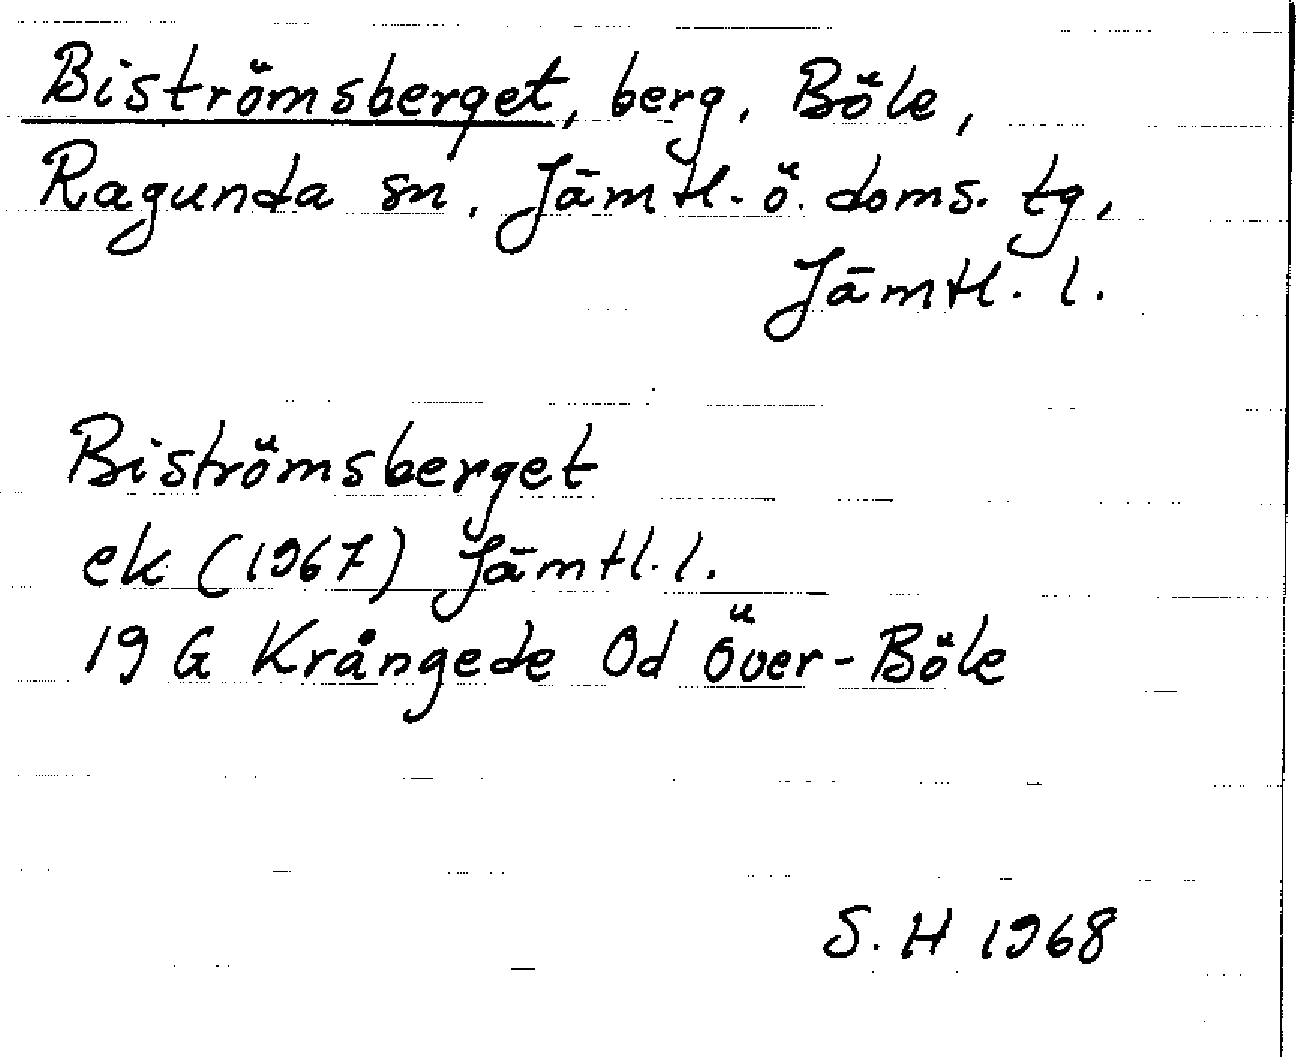 Biströmsberget, berg, Böle,
Ragunda sn, Jämtl. ö. doms. tg,
Jämtl. l.
Biströmsberget
ek (1967) Jämtl. l.
19 G Krångede 0d Över-Böle
S. H 1968